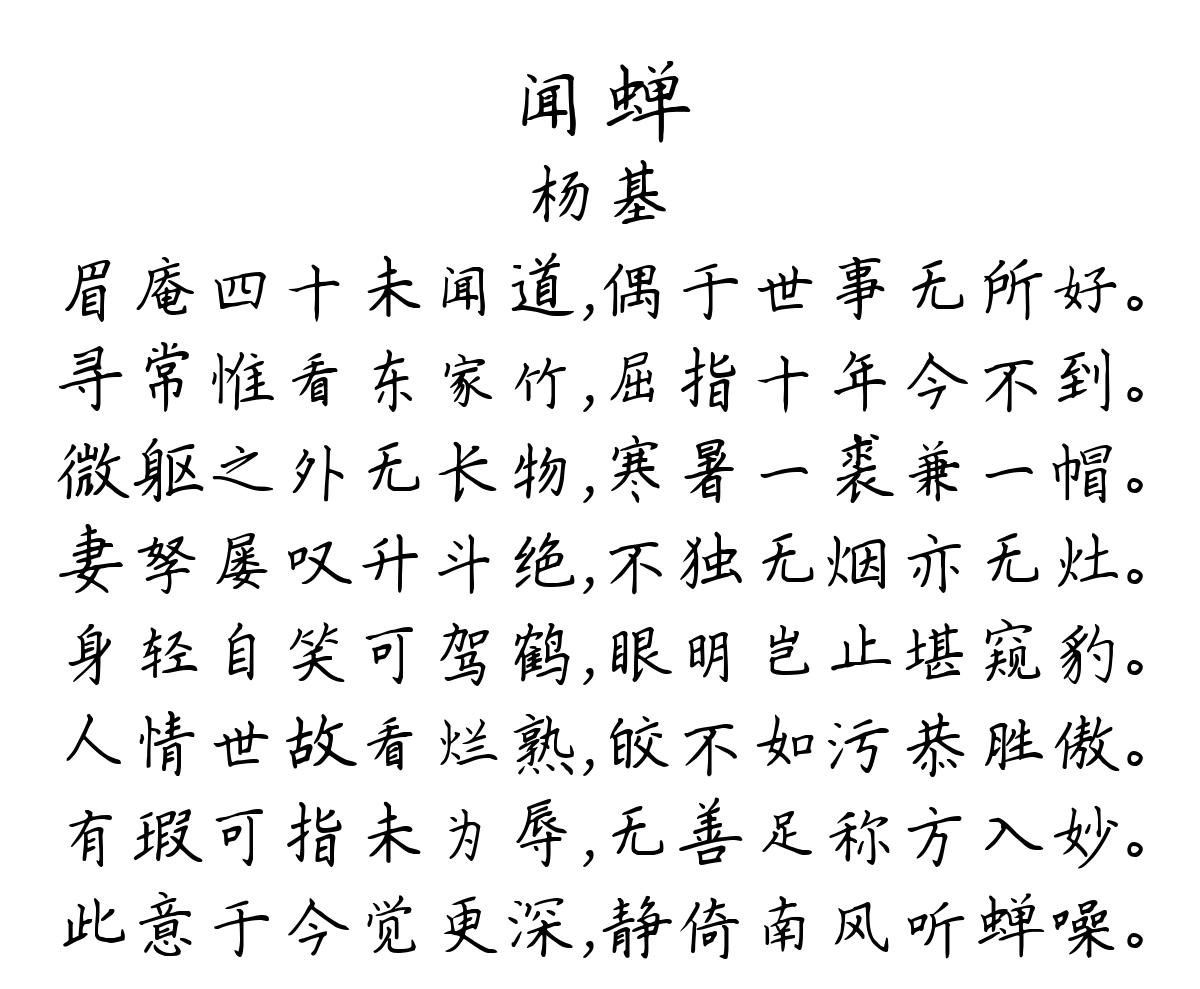 闻蝉
杨基
眉庵四十未闻道,偶于世事无所好。
寻常惟看东家竹,屈指十年今不到。
微躯之外无长物,寒暑一裘兼一帽。
妻孥屡叹升斗绝,不独无烟亦无灶。
身轻自笑可驾鹤,眼明岂止堪窥豹。
人情世故看烂熟,皎不如污恭胜傲。
有瑕可指未为辱,无善足称方入妙。
此意于今觉更深,静倚南风听蝉噪。